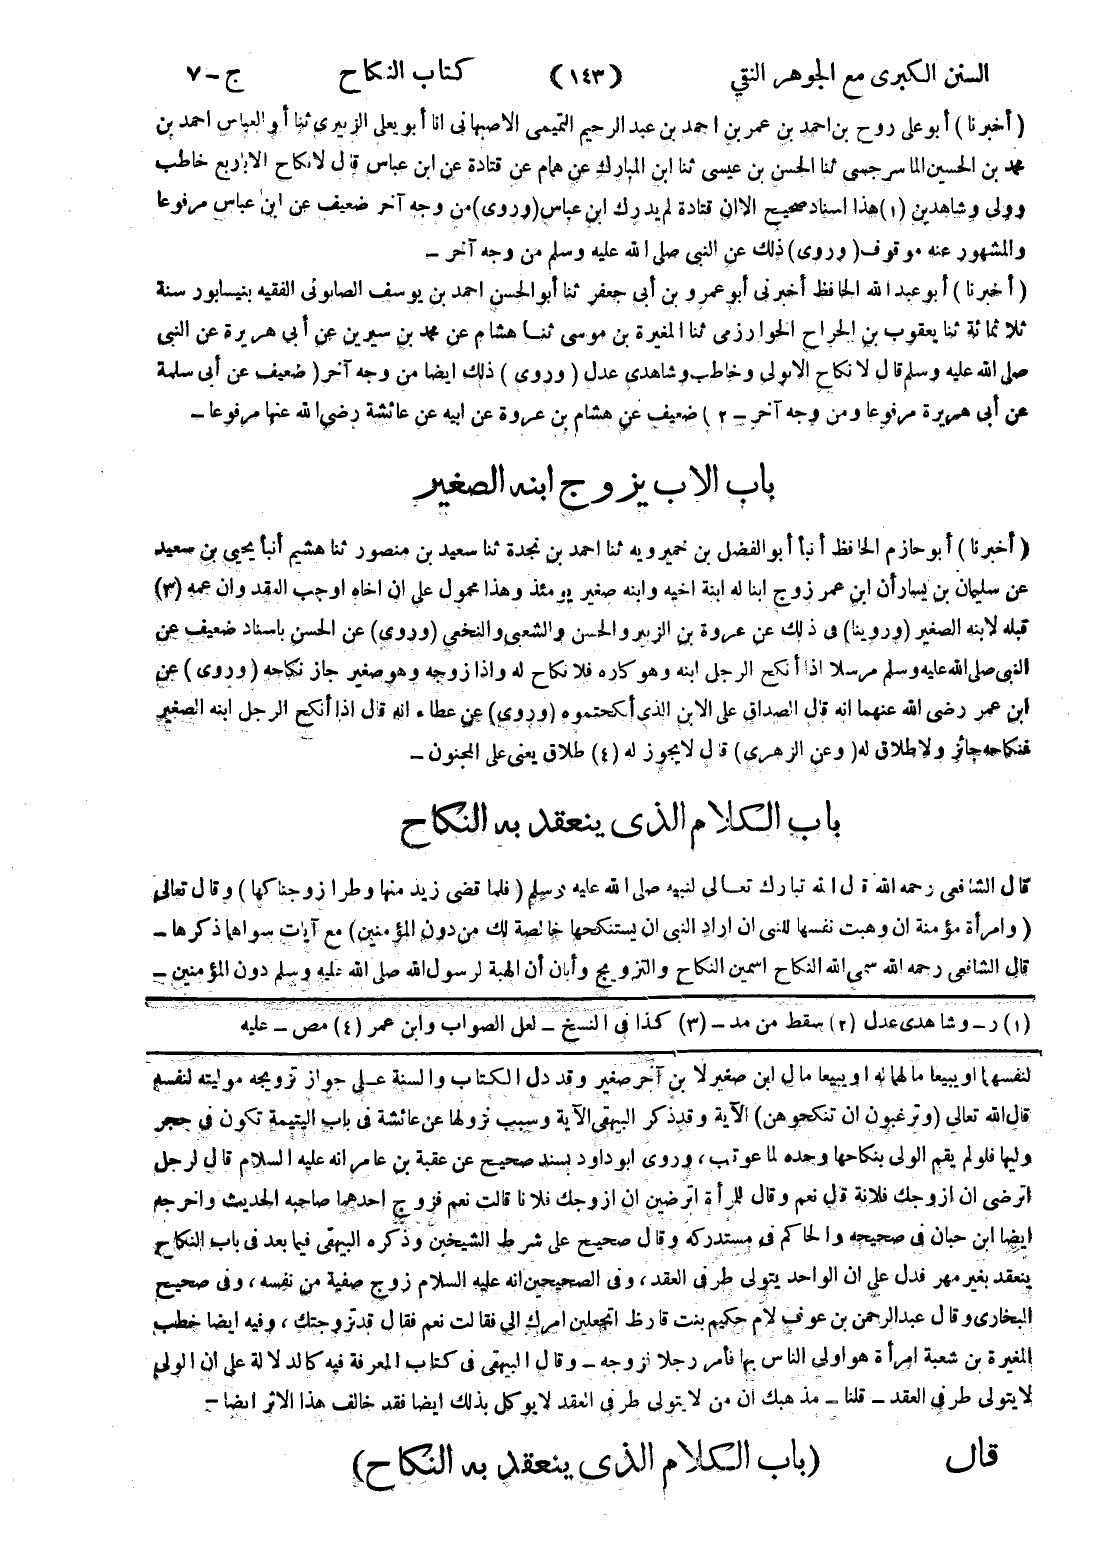 السنن الكبرى مع الجوهر النقي (١٤٣) كتاب النكاح ج-٧
(أخبرنا) أبو على روح بن احمد بن عمر بن احمد بن عبد الرحيم التميمى الاصبهانى انا أبو يعلى الزبيرى ثنا أبو العباس احمد بن
محمد بن الحسين الماسرجسى ثنا الحسن بن عيسى ثنا ابن المبارك عن همام عن قتادة عن ابن عباس قال لا نكاح الا باربع خاطب
وولى وشاهدين (١) هذا اسناد صحيح الا ان قتادة لم يدرك ابن عباس (وروى) من وجه آخر ضعيف عن ابن عباس مرفوعا
والمشهور عنه موقوف (وروى) ذلك عن النبى صلى الله عليه وسلم من وجه آخر -
(أخبرنا) أبو عبد الله الحافظ أخبرنى أبو عمرو بن أبى جعفر ثنا أبو الحسن احمد بن يوسف الصابونى الفقيه بنيسابور سنة
ثلاثمائة ثنا يعقوب بن الجراح الخوارزمى ثنا المغيرة بن موسى ثنا هشام عن محمد بن سيرين عن أبى هريرة عن النبى
صلى الله عليه وسلم قال لا نكاح الا بولى وخاطب وشاهدى عدل (وروى) ذلك ايضا من وجه آخر (ضعيف عن أبى سلمة
عن أبى هريرة مرفوعا ومن وجه آخر - ٢) ضعيف عن هشام بن عروة عن ابيه عن عائشة رضى الله عنها مرفوعا -
باب الاب يزوج ابنه الصغير
(أخبرنا) أبو حازم الحافظ أنبأ أبو الفضل بن خميرويه ثنا احمد بن نجدة ثنا سعيد بن منصور ثنا هشيم أنبأ يحيى بن سعيد
عن سليمان بن يسار أن ابن عمر زوج ابنا له ابنة اخيه وابنه صغير يومئذ وهذا محمول على ان اخاه اوجب العقد وان عمه (٣)
قبله لابنه الصغير (وروينا) فى ذلك عن عروة بن الزبير والحسن والشعبى والنخعى (وروى) عن الحسن باسناد ضعيف عن
النبى صلى الله عليه وسلم مرسلا اذا أنكح الرجل ابنه وهو كاره فلا نكاح له واذا زوجه وهو صغير جاز نكاحه (وروى) عن
ابن عمر رضى الله عنهما انه قال الصداق على الابن الذى أنكحتموه (وروى) عن عطاء انه قال اذا أنكح الرجل ابنه الصغير
فنكاحه جائز ولا طلاق له (وعن الزهرى) قال لا يجوز له (٤) طلاق يعنى على المجنون -
باب الكلام الذى ينعقد به النكاح
قال الشافعى رحمه الله قال الله تبارك تعالى لنبيه صلى الله عليه وسلم (فلما قضى زيد منها وطرا زوجناكها) وقال تعالى
(وامرأة مؤمنة ان وهبت نفسها للنبى ان اراد النبى ان يستنكحها خالصة لك من دون المؤمنين) مع آيات سواها ذكرها -
قال الشافعى رحمه الله سمى الله النكاح اسمين النكاح والتزويج وأبان أن الهبة لرسول الله صلى الله عليه وسلم دون المؤمنين -
(١) ر - وشاهدى عدل (٢) سقط من مد - (٣) كذا فى النسخ - لعل الصواب وابن عمر (٤) مص - عليه
لنفسها او يبيعا مالهما له او يبيعا مال ابن صغير لابن آخر صغير وقد دل الكتاب والسنة على جواز تزويجه موليته لنفسه
قال الله تعالى (وترغبون ان تنكحوهن) الآية وقد ذكر البيهقى الآية وسبب نزولها عن عائشة فى باب اليتيمة تكون فى حجر
وليها فلو لم يقم الولى بنكاحها وحده لما عوتب، وروى ابو داود بسند صحيح عن عقبة بن عامر انه عليه السلام قال لرجل
اترضى ان ازوجك فلانة قال نعم وقال للمرأة اترضين ان ازوجك فلانا قالت نعم فزوج احدهما صاحبه الحديث واخرجه
ايضا ابن حبان فى صحيحه والحاكم فى مستدركه وقال صحيح على شرط الشيخين وذكره البيهقى فيما بعد فى باب النكاح
ينعقد بغير مهر فدل على ان الواحد يتولى طرفى العقد، وفى الصحيحين انه عليه السلام زوج صفية من نفسه، وفى صحيح
البخارى وقال عبد الرحمن بن عوف لام حكيم بنت قارظ اتجعلين امرك الى فقالت نعم فقال قد تزوجتك، وفيه ايضا خطب
المغيرة بن شعبة امرأة هو اولى الناس بها فأمر رجلا فزوجه - وقال البيهقى فى كتاب المعرفة فيه كالدلالة على ان الولى
لا يتولى طرفى العقد - قلنا - مذهبك ان من لا يتولى طرفى العقد لا يوكل بذلك ايضا فقد خالف هذا الاثر ايضا -
قال (باب الكلام الذى ينعقد به النكاح)